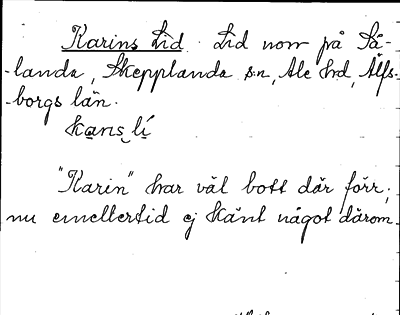 Karins Lid. Lid norr på Så-
-landa, Skepplanda s:n, Ale hrd, Älfs-
-borgs län.
ka̲ns lí
"Karin" har väl bott där förr,
nu emellertid ej känt något därom.